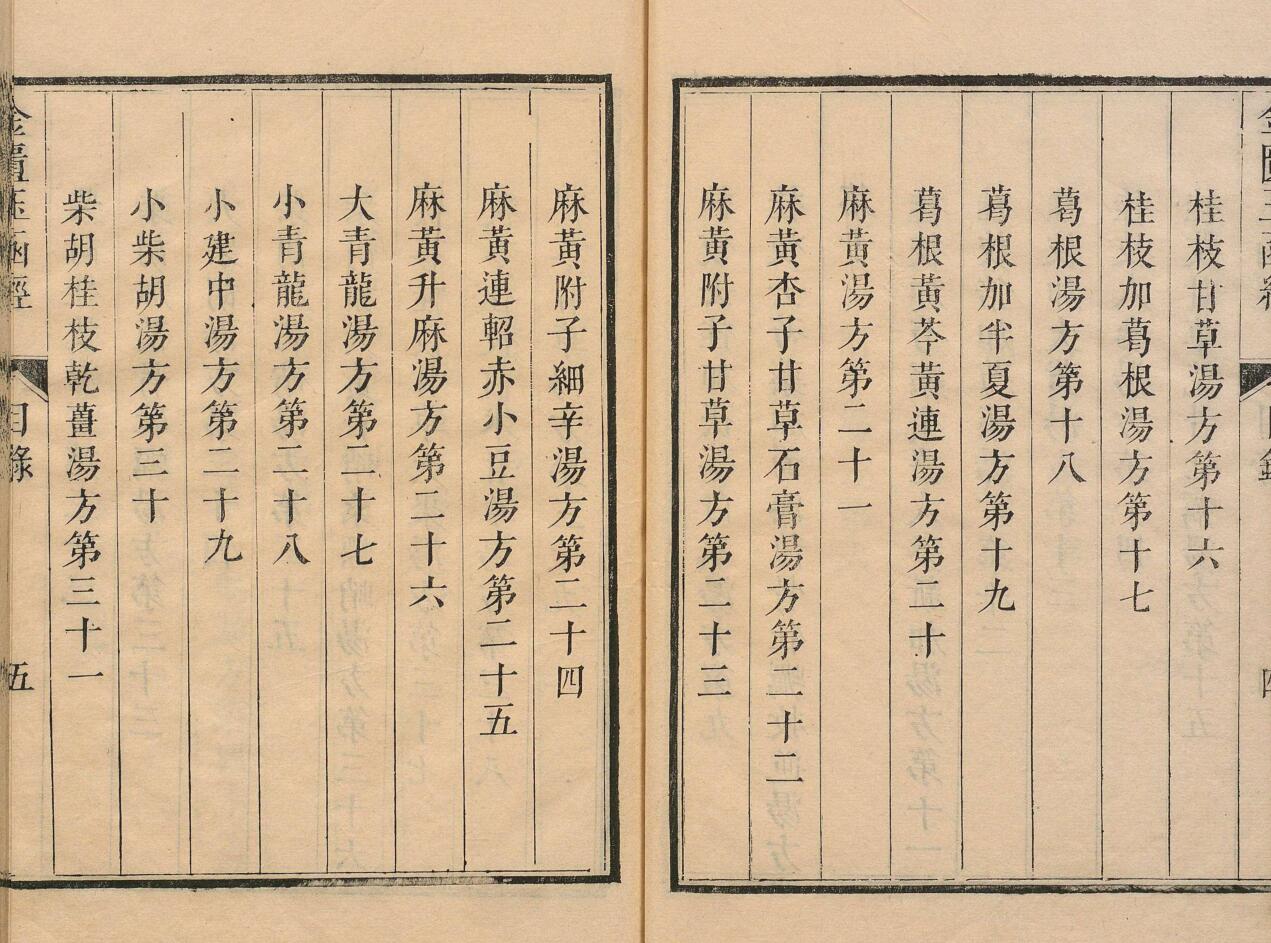 桂枝甘草湯方第十六
桂枝加葛根湯方第十七
葛根湯方第十八
葛根加半夏湯方第十九
葛根黃芩黃連湯方第二十
麻黃湯方第二十一
麻黃杏子甘草石膏湯方第二十二
麻黃附子甘草湯方第二十三
麻黃附子細辛湯方第二十四
麻黃連軺赤小豆湯方第二十五
麻黃升麻湯方第二十六
大青龍湯方第二十七
小青龍湯方第二十八
小建中湯方第二十九
小柴胡湯方第三十
柴胡桂枝乾薑湯方第三十一
金匱玉函經 目錄 五